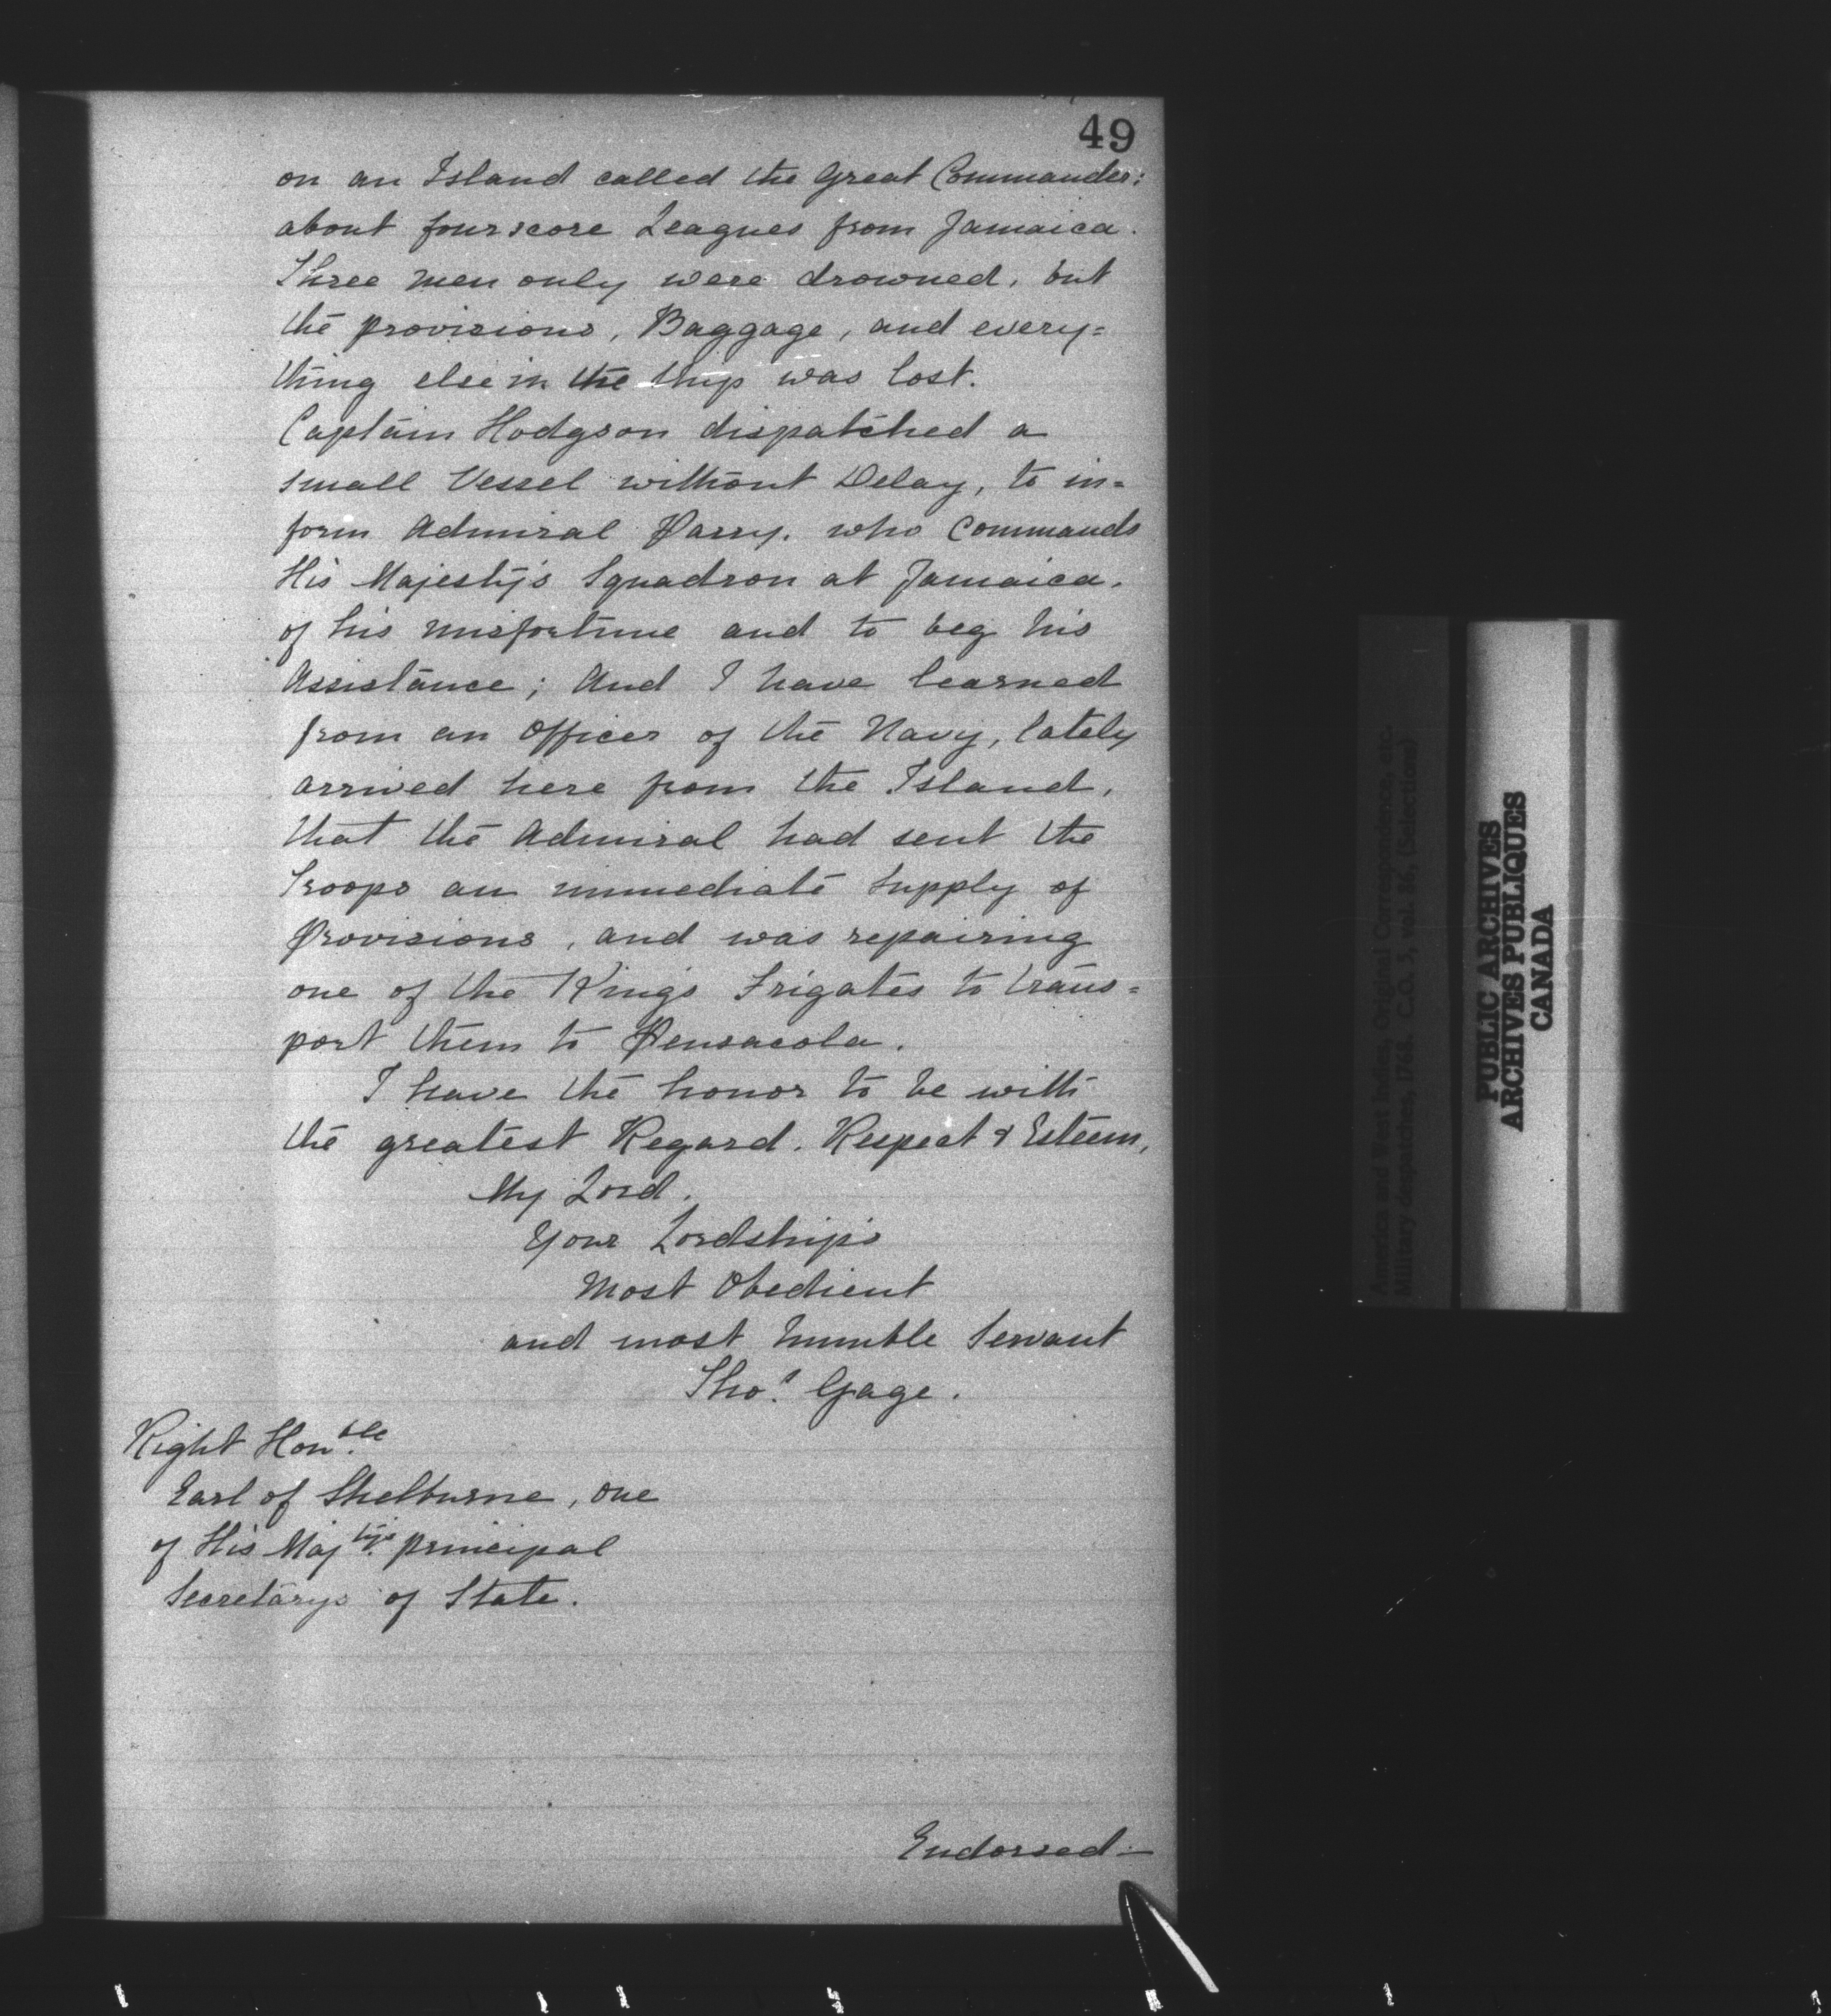 49
on an Island called the Great Commander:
about fourscore Leagues from Jamaica.
Three men only were drowned, but
the provisions, Baggage, and every=
thing else in the Ship was lost.
Captain Hodgson dispatched a
small Vessel without Delay, to in=
form Admiral Parry, who Commands
His Majesty's Squadron at Jamaica,
of his misfortune and to beg his
Assistance; And I have learned
from an Officer of the Navy, lately
arrived here from the Island,
that the Admiral had sent the
Troops an immediate Supply of
Provisions, and was repairing
one of the King's Frigates to trans=
port them to Pensacola.
I have the honor to be with
the greatest Regard, Respect & Esteem,
My Lord,
Your Lordship's
Most Obedient
and most humble Servant
Thos. Gage.
Right Honble
Earl of Shelburne, one
of His Majty's principal
Secretarys of State.
Endorsed—
America and West Indies, Original Correspondence, etc.
Military despatches, 1768. C.O. 5, vol. 86, (Selections)
PUBLIC ARCHIVES
ARCHIVES PUBLIQUES
CANADA